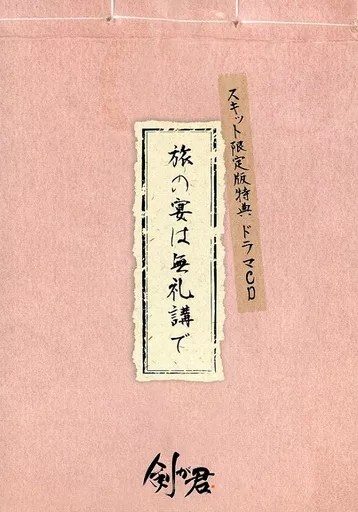 スキット限定版特典 ドラマCD
旅の宴は無礼講で
剣が君